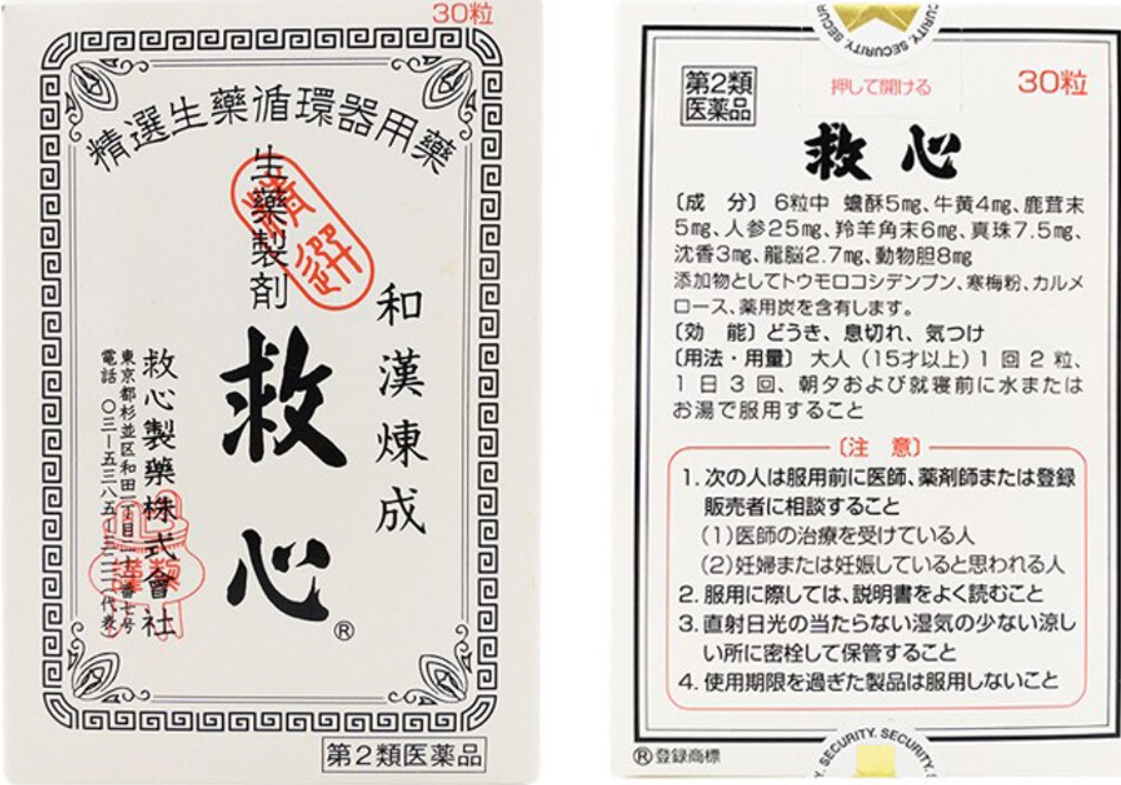 30粒
精選生藥循環器用藥
和漢煉成
生藥製剤
救心
®
救心製藥株式會社
東京都杉並区和田一丁目二十一番七号
電話 〇三―五三八五―三二一一(代表)
第2類医薬品
SECURITY. SECUR
第2類
医薬品
押して開ける
30粒
救心
〔成 分〕 6粒中 蟾酥5mg、牛黄4mg、鹿茸末
5mg、人参25mg、羚羊角末6mg、真珠7.5mg、
沈香3mg、龍脳2.7mg、動物胆8mg
添加物としてトウモロコシデンプン、寒梅粉、カルメ
ロース、薬用炭を含有します。
〔効 能〕どうき、息切れ、気つけ
〔用法・用量〕 大人(15才以上)1回2粒、
1日3回、朝夕および就寝前に水または
お湯で服用すること
〔注 意〕
1. 次の人は服用前に医師、薬剤師または登録
販売者に相談すること
(1)医師の治療を受けている人
(2)妊婦または妊娠していると思われる人
2. 服用に際しては、説明書をよく読むこと
3. 直射日光の当たらない湿気の少ない涼し
い所に密栓して保管すること
4. 使用期限を過ぎた製品は服用しないこと
®登録商標
SECURITY. SECURITY.